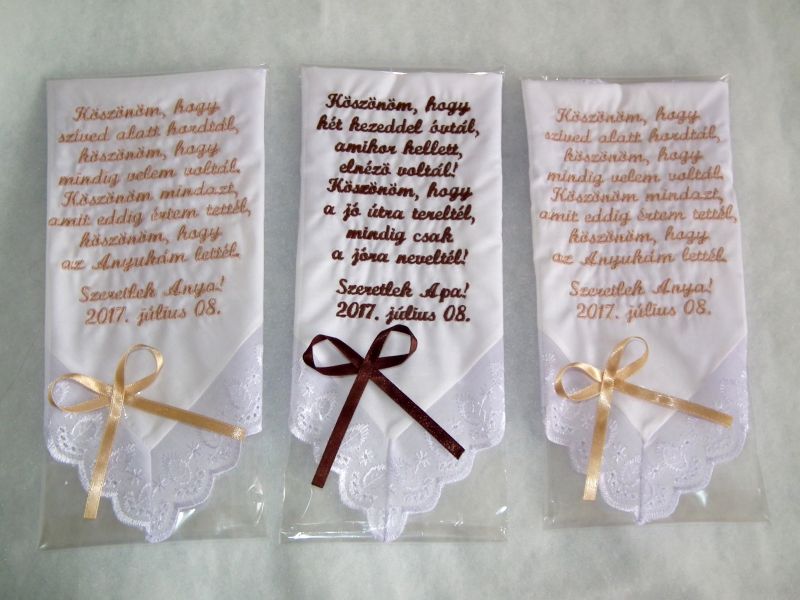 Köszönöm, hogy
szíved alatt hordtál,
köszönöm, hogy
mindig velem voltál.
Köszönöm mindazt,
amit eddig értem tettél,
köszönöm, hogy
az Anyukám lettél.
Szeretlek Anya!
2017. július 08.
Köszönöm, hogy
két kezeddel óvtál,
amikor kellett,
elnéző voltál!
Köszönöm, hogy
a jó útra tereltél,
mindig csak
a jóra neveltél!
Szeretlek Apa!
2017. július 08.
Köszönöm, hogy
szíved alatt hordtál,
köszönöm, hogy
mindig velem voltál.
Köszönöm mindazt,
amit eddig értem tettél,
köszönöm, hogy
az Anyukám lettél.
Szeretlek Anya!
2017. július 08.